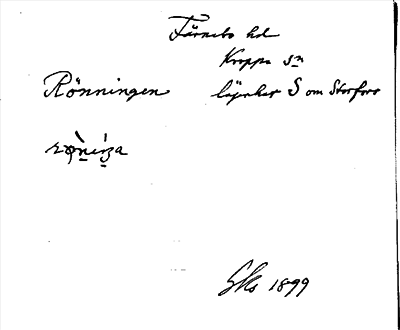 Färnebo hd
Kroppa sn
Rönningen lägenhet S om Storfors
Gks 1899